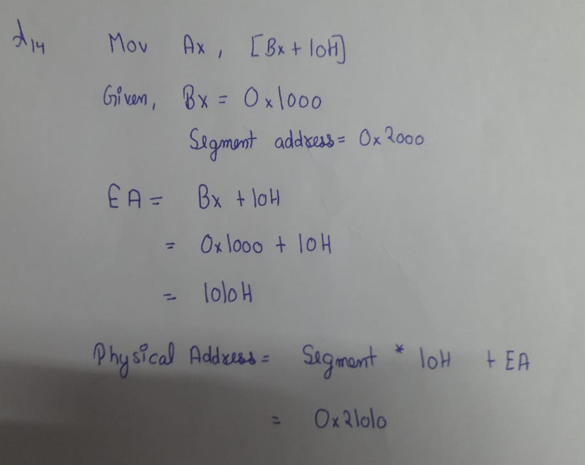 λ14 Mov Ax, [Bx + 10H]
Given, Bx = 0x1000
Segment address = 0x2000
EA = Bx + 10H
= 0x1000 + 10H
= 1010H
Physical Address = Segment * 10H + EA
= 0x21010